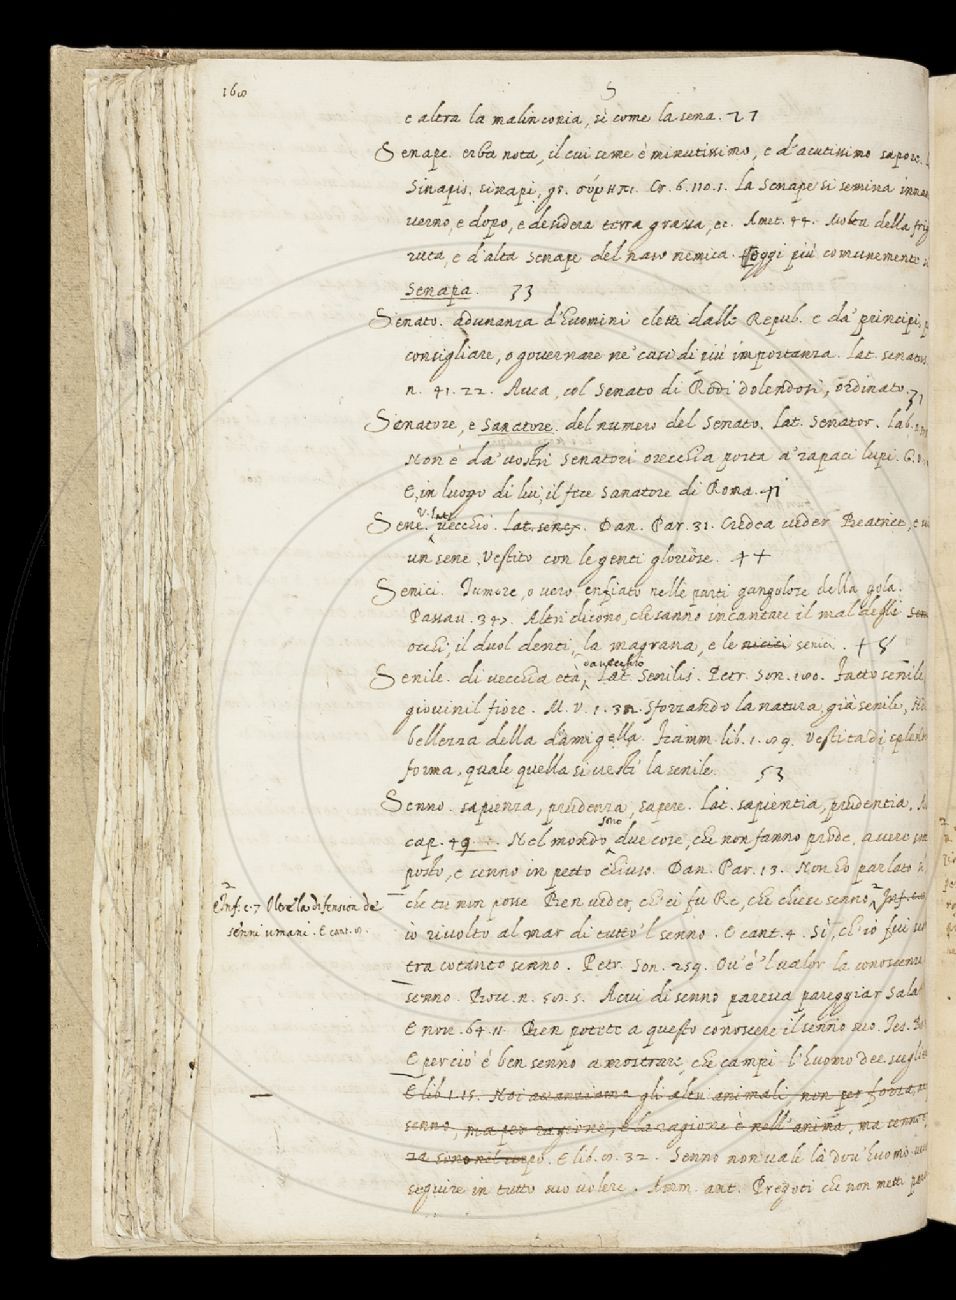 160
S
e altra la malinconia, sì come la sena. 27
Senape. erba nota, il cui seme è minutissimo, e d'acutissimo sapore.
Sinapis. sinapi, gr. Cr. 6. 110. 1. La Senape si semina innan
verno, e dopo, e desidera terra grassa, ec. Amet. 44. Molta della frig
ruca, e d'alta Senape del naso nemica. oggi più comunemente
Senapa. 33
Senato. adunanza d'huomini eletti dalle Repub. e da' principi, p
consigliare, o governare ne' casi di più importanza. Lat. senatus.
n. 41. 22. Avea, col Senato di Rodi dolendosi, ordinato. 37
Senatore, e Sanatore. del numero del Senato. Lat. Senator. Lab.
Non è da' vostri Senatori orecchia porta a' rapaci lupi. G.
E, in luogo di lui, il fece Sanatore di Roma. 41
Sene. V. Lat. vecchio. Lat. senex. Dan. Par. 31. Credea veder Beatrice, e
un sene, Vestito con le genti gloriose. 44
Senici. Tumore, o vero enfiato nelle parti gangolose della gola.
Passav. 342. Altri dicono, che sanno incantare il mal degli
occhi, il duol denti, la magrana, e le senici. 48
Senile. di vecchia età, da vecchio Lat. Senilis. Petr. Son. 180. Fatto senile
giovinil fiore. M. V. 1. Sforzando la natura, già senile,
bellezza della damigella. Fiamm. lib. 1. 89. Vestita di splen
forma, quale quella si vestì la senile. 53
Senno. sapienza, prudenza, sapere. Lat. sapientia, prudentia.
cap. 49. Nel mondo sono due cose, che non fanno prode, avere
posto, e senno in petto chiuso. Dan. Par. 13. Non ho parlato
che tu non posse Ben veder, ch'ei fu Re, che chiese senno, Inf.
E Inf. c. 7 Oltre la difension de
senni umani. E cant. 8.
io rivolto al mar di tutto 'l senno. E cant. 4. Sì, ch'io fui
tra cotanto senno. Petr. Son. 259. Ov'è 'l valor la conoscenza
senno. Bocc. n. 58. 5. A cui di senno pareva pareggiar Sala
E nov. 64. 11. Ben potete a questo conoscere il senno suo. Tes.
E perciò è ben senno a mostrare, che campi l'huomo dee
E lib. 1. 15. Noi avanziamo gli altri animali, non per forza,
senno, ma per ragione, e la ragione è nell'anima, ma
za sono nel corpo. E lib. 8. 32. Senno non vale là dov'huomo
seguire in tutto suo volere. Amm. ant. Pregoti che non metti